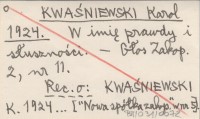 KWAŚNIEWSKI Karol
1924. W imię prawdy i
słuszności. – Głos Zakop.
2, nr 11.
Rec. o: KWAŚNIEWSKI
K. 1924... ["Nowa spółka zakop." nr 5].